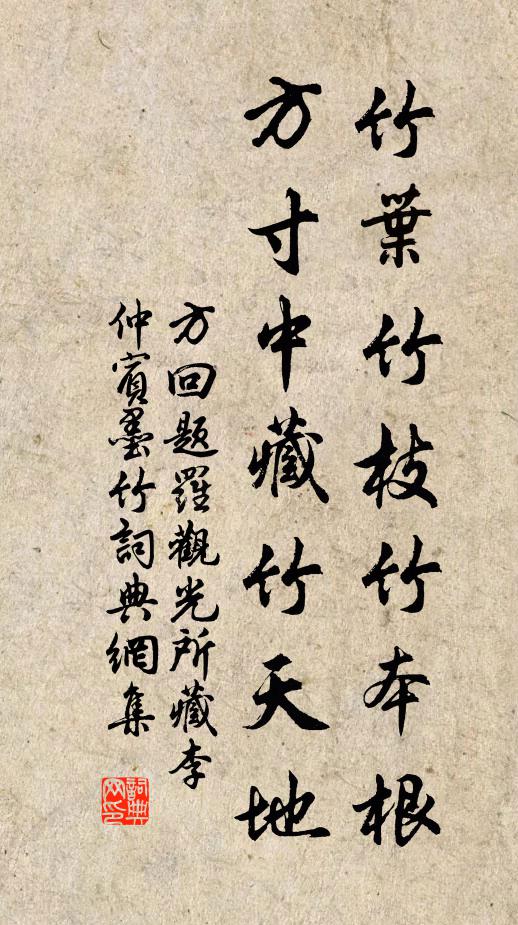 竹葉竹枝竹本根
方寸中藏竹天地
方回題羅觀光所藏李
仲賓墨竹詞典網集
詞典
网印